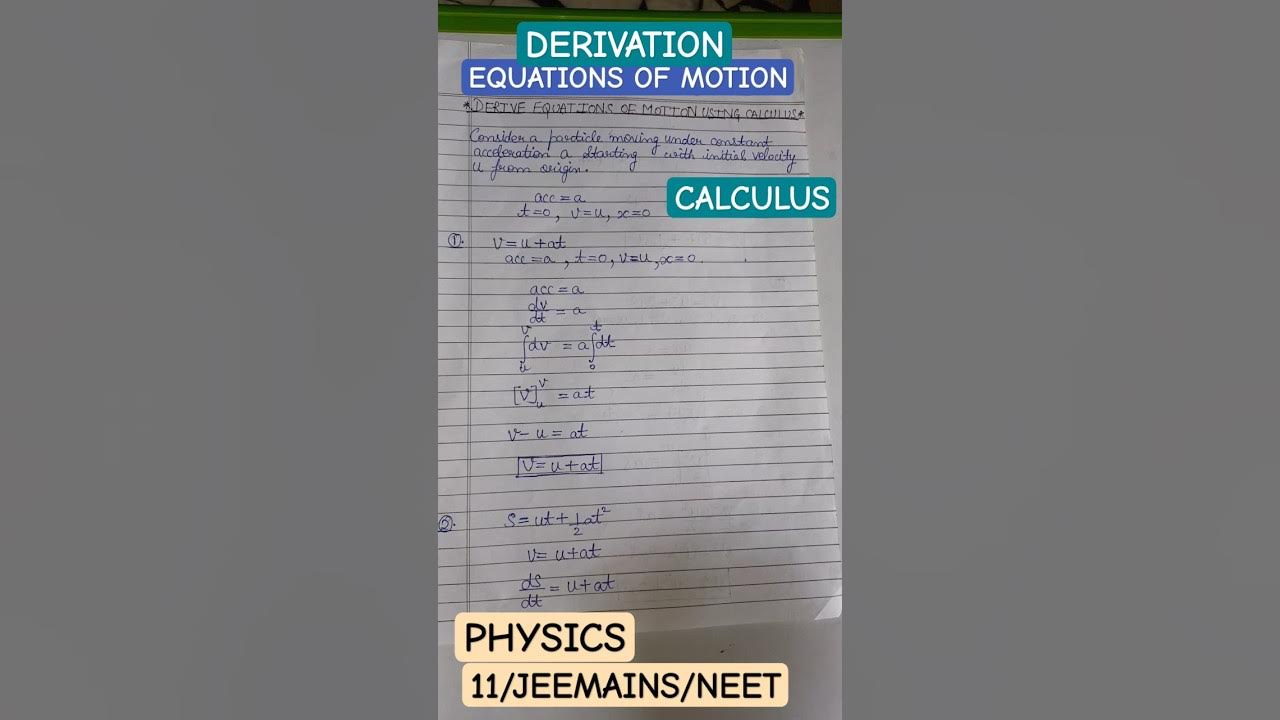 DERIVATION
EQUATIONS OF MOTION
*DERIVE EQUATIONS OF MOTION USING CALCULUS*
Consider a particle moving under constant
acceleration a starting with initial velocity
u from origin.
CALCULUS
acc = a
t=0, v=u, x=0
①. v = u + at
acc = a, t=0, v=u, x=0.
acc = a
dv/dt = a
∫ᵤᵛ dv = a∫₀ᵗ dt
[v]ᵤᵛ = at
v - u = at
v = u + at
②. S = ut + 1/2 at²
v = u + at
ds/dt = u + at
PHYSICS
11/JEEMAINS/NEET